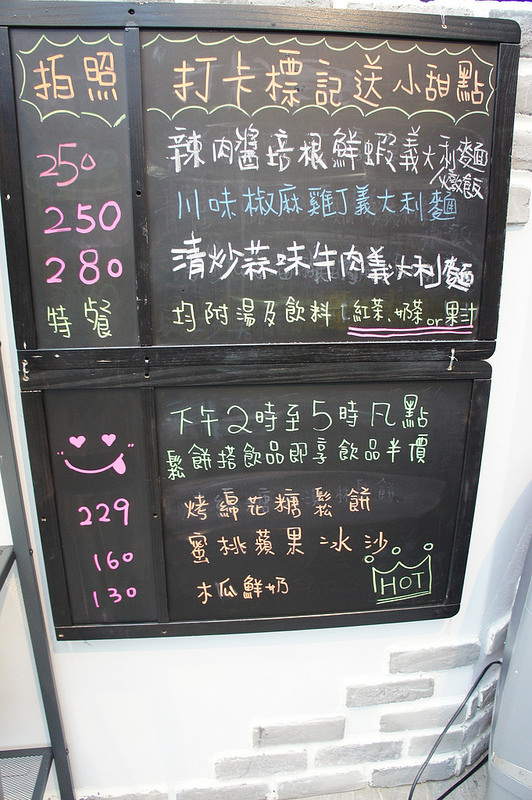 拍照 打卡標記送小甜點
250 辣肉醬培根鮮蝦義大利麵
燉飯
250 川味椒麻雞丁義大利麵
280 清炒蒜味牛肉義大利麵
特餐 均附湯及飲料 紅茶、奶茶or果汁
下午2時至5時凡點
鬆餅搭飲品即享飲品半價
229 烤綿花糖鬆餅
160 蜜桃蘋果冰沙
130 木瓜鮮奶
HOT